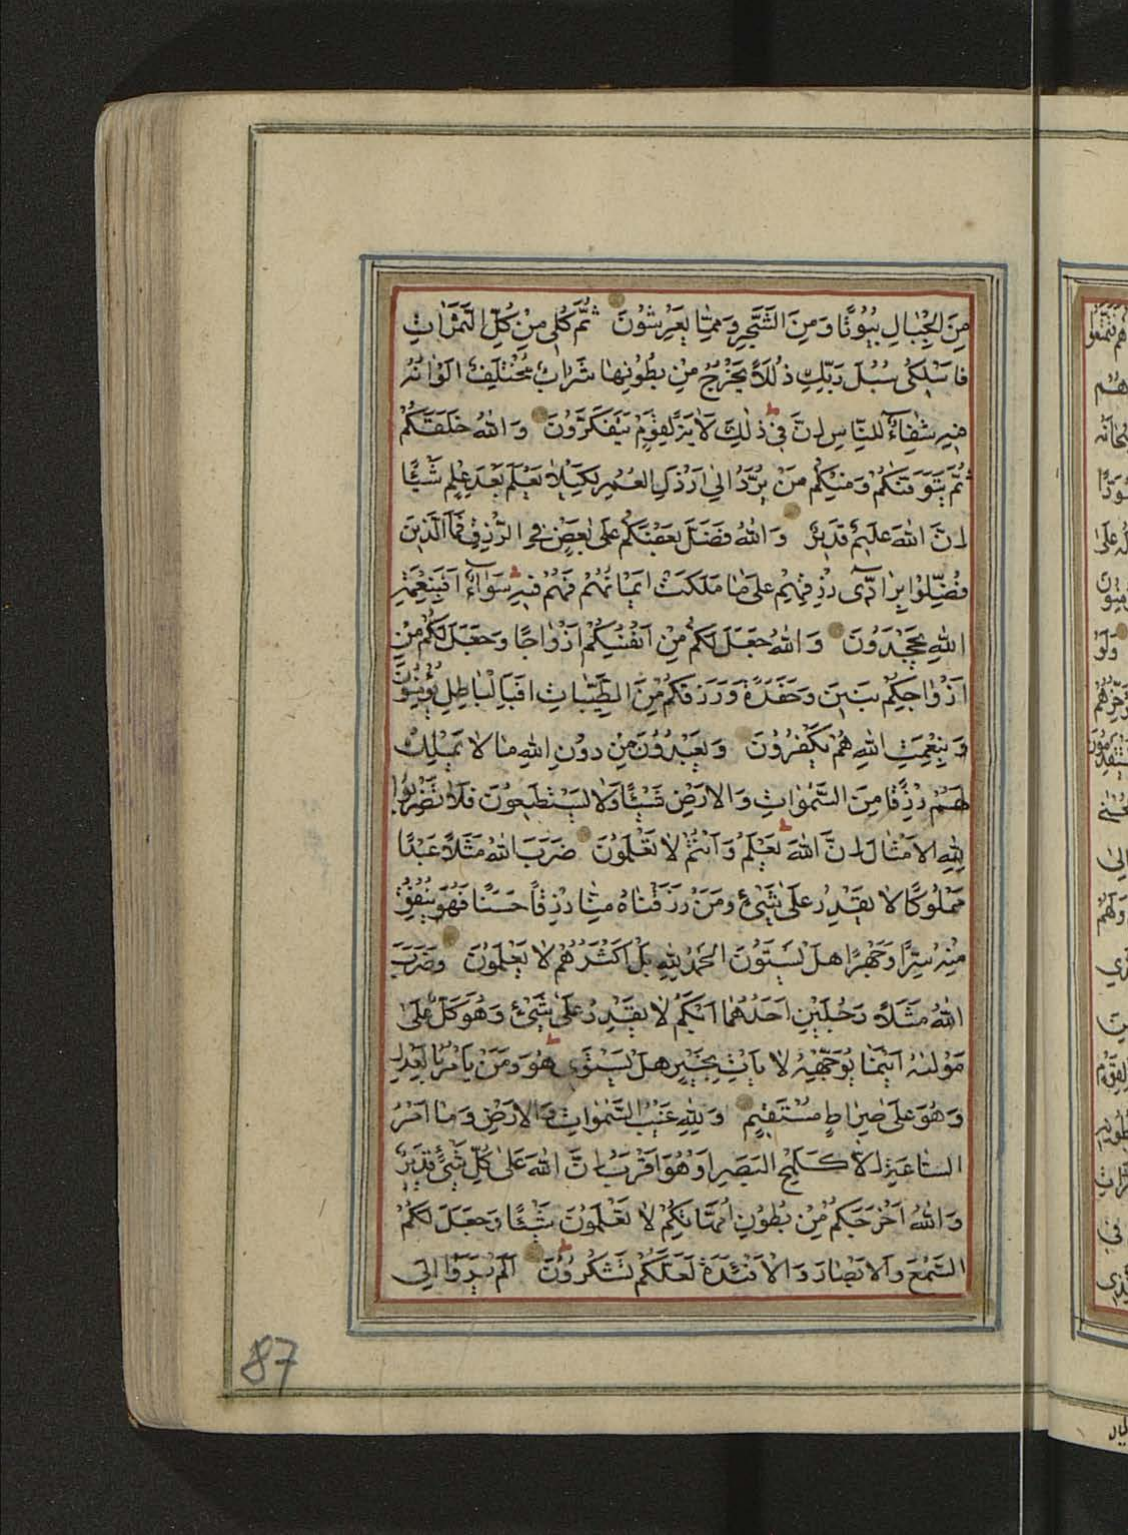 مِنَ الْجِبَالِ بُيُوتًا وَمِنَ الشَّجَرِ وَمِمَّا يَعْرِشُونَ ثُمَّ كُلِي مِنْ كُلِّ الثَّمَرَاتِ
فَاسْلُكِي سُبُلَ رَبِّكِ ذُلُلًا يَخْرُجُ مِنْ بُطُونِهَا شَرَابٌ مُخْتَلِفٌ اَلْوَانُهُ
فِيهِ شِفَاءٌ لِلنَّاسِ اِنَّ فِي ذٰلِكَ لَاٰيَةً لِقَوْمٍ يَتَفَكَّرُونَ وَاللهُ خَلَقَكُمْ
ثُمَّ يَتَوَفّٰكُمْ وَمِنْكُمْ مَنْ يُرَدُّ اِلٰى اَرْذَلِ الْعُمُرِ لِكَيْلَا يَعْلَمَ بَعْدَ عِلْمٍ شَيْئًا
اِنَّ اللهَ عَلِيمٌ قَدِيرٌ وَاللهُ فَضَّلَ بَعْضَكُمْ عَلٰى بَعْضٍ فِي الرِّزْقِ فَمَا الَّذِينَ
فُضِّلُوا بِرَادِّي رِزْقِهِمْ عَلٰى مَا مَلَكَتْ اَيْمَانُهُمْ فَهُمْ فِيهِ سَوَاءٌ اَفَبِنِعْمَةِ
اللهِ يَجْحَدُونَ وَاللهُ جَعَلَ لَكُمْ مِنْ اَنْفُسِكُمْ اَزْوَاجًا وَجَعَلَ لَكُمْ مِنْ
اَزْوَاجِكُمْ بَنِينَ وَحَفَدَةً وَرَزَقَكُمْ مِنَ الطَّيِّبَاتِ اَفَبِالْبَاطِلِ يُؤْمِنُونَ
وَبِنِعْمَتِ اللهِ هُمْ يَكْفُرُونَ وَيَعْبُدُونَ مِنْ دُونِ اللهِ مَا لَا يَمْلِكُ
لَهُمْ رِزْقًا مِنَ السَّمٰوَاتِ وَالْاَرْضِ شَيْئًا وَلَا يَسْتَطِيعُونَ فَلَا تَضْرِبُوا
لِلهِ الْاَمْثَالَ اِنَّ اللهَ يَعْلَمُ وَاَنْتُمْ لَا تَعْلَمُونَ ضَرَبَ اللهُ مَثَلًا عَبْدًا
مَمْلُوكًا لَا يَقْدِرُ عَلٰى شَيْءٍ وَمَنْ رَزَقْنَاهُ مِنَّا رِزْقًا حَسَنًا فَهُوَ يُنْفِقُ
مِنْهُ سِرًّا وَجَهْرًا هَلْ يَسْتَوُونَ الْحَمْدُ لِلهِ بَلْ اَكْثَرُهُمْ لَا يَعْلَمُونَ وَضَرَبَ
اللهُ مَثَلًا رَجُلَيْنِ اَحَدُهُمَا اَبْكَمُ لَا يَقْدِرُ عَلٰى شَيْءٍ وَهُوَ كَلٌّ عَلٰى
مَوْلٰيهُ اَيْنَمَا يُوَجِّهْهُ لَا يَأْتِ بِخَيْرٍ هَلْ يَسْتَوِي هُوَ وَمَنْ يَأْمُرُ بِالْعَدْلِ
وَهُوَ عَلٰى صِرَاطٍ مُسْتَقِيمٍ وَلِلهِ غَيْبُ السَّمٰوَاتِ وَالْاَرْضِ وَمَا اَمْرُ
السَّاعَةِ اِلَّا كَلَمْحِ الْبَصَرِ اَوْ هُوَ اَقْرَبُ اِنَّ اللهَ عَلٰى كُلِّ شَيْءٍ قَدِيرٌ
وَاللهُ اَخْرَجَكُمْ مِنْ بُطُونِ اُمَّهَاتِكُمْ لَا تَعْلَمُونَ شَيْئًا وَجَعَلَ لَكُمُ
السَّمْعَ وَالْاَبْصَارَ وَالْاَفْئِدَةَ لَعَلَّكُمْ تَشْكُرُونَ اَلَمْ يَرَوْا اِلَى
87